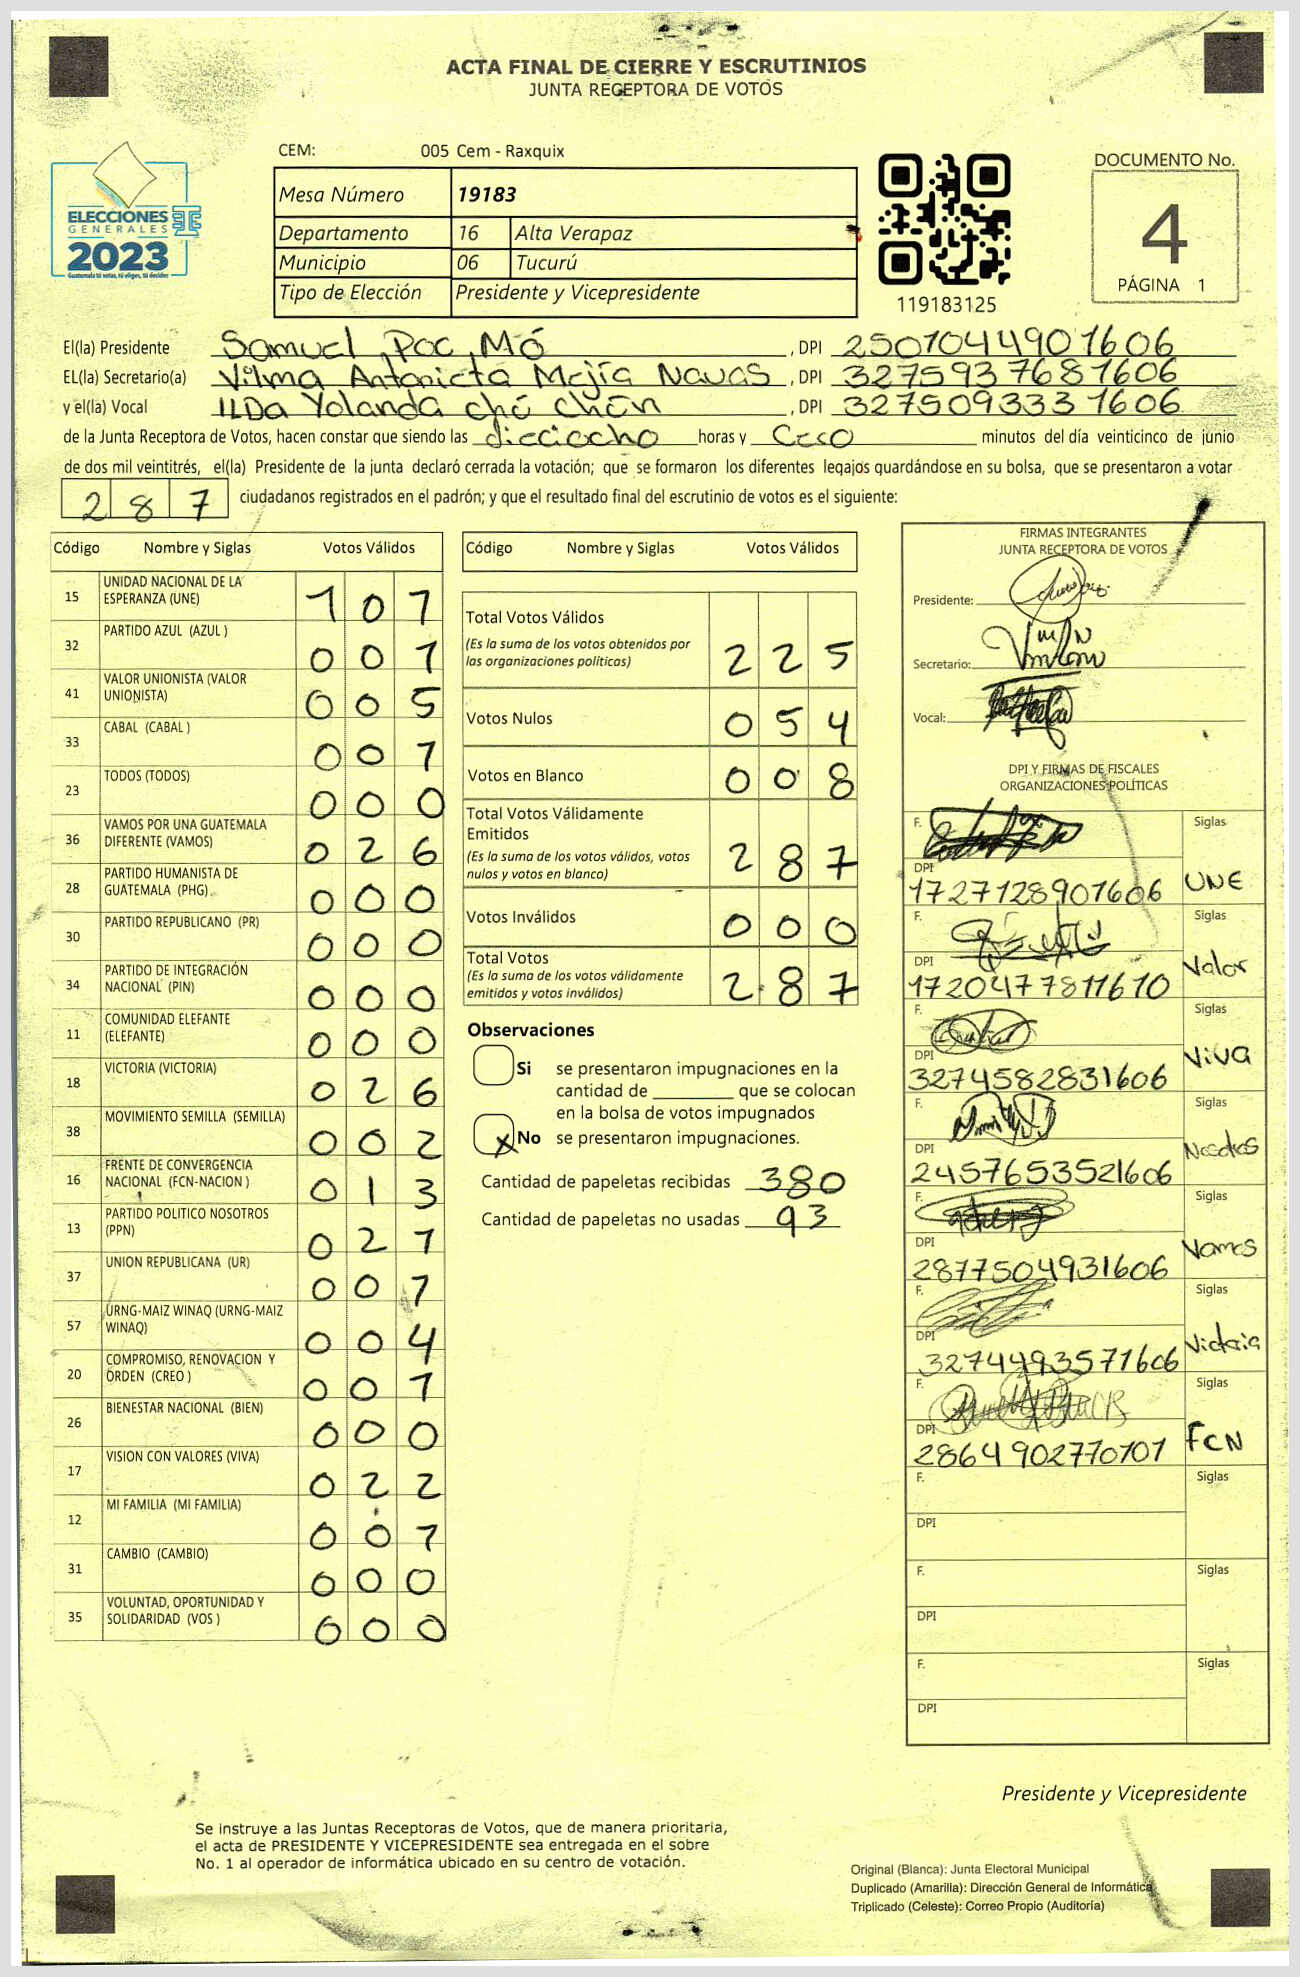 ACTA FINAL DE CIERRE Y ESCRUTINIOS
JUNTA RECEPTORA DE VOTOS
ELECCIONES
GENERALES
2023
Guatemala tú votas, tú eliges, tú decides
CEM: 005 Cem - Raxquix
Mesa Número 19183
Departamento 16 Alta Verapaz
Municipio 06 Tucurú
Tipo de Elección Presidente y Vicepresidente
119183125
DOCUMENTO No.
4
PÁGINA 1
El(la) Presidente Samuel Pac Mó, DPI 2501044901606
EL(la) Secretario(a) Vilma Antonieta Mejía Navas, DPI 3275937681606
y el(la) Vocal ILDa Yolanda chó Chén, DPI 3275093331606
de la Junta Receptora de Votos, hacen constar que siendo las dieciocho horas y Cero minutos del día veinticinco de junio
de dos mil veintitrés, el(la) Presidente de la junta declaró cerrada la votación; que se formaron los diferentes legajos guardándose en su bolsa, que se presentaron a votar
287 ciudadanos registrados en el padrón; y que el resultado final del escrutinio de votos es el siguiente:
Código Nombre y Siglas Votos Válidos
15 UNIDAD NACIONAL DE LA
ESPERANZA (UNE) 101
32 PARTIDO AZUL (AZUL ) 001
41 VALOR UNIONISTA (VALOR
UNIONISTA) 005
33 CABAL (CABAL ) 001
23 TODOS (TODOS) 000
36 VAMOS POR UNA GUATEMALA
DIFERENTE (VAMOS) 026
28 PARTIDO HUMANISTA DE
GUATEMALA (PHG) 000
30 PARTIDO REPUBLICANO (PR) 000
34 PARTIDO DE INTEGRACIÓN
NACIONAL (PIN) 000
11 COMUNIDAD ELEFANTE
(ELEFANTE) 000
18 VICTORIA (VICTORIA) 026
38 MOVIMIENTO SEMILLA (SEMILLA) 002
16 FRENTE DE CONVERGENCIA
NACIONAL (FCN-NACION ) 013
13 PARTIDO POLITICO NOSOTROS
(PPN) 021
37 UNION REPUBLICANA (UR) 001
57 URNG-MAIZ WINAQ (URNG-MAIZ
WINAQ) 004
20 COMPROMISO, RENOVACION Y
ORDEN (CREO ) 001
26 BIENESTAR NACIONAL (BIEN) 000
17 VISION CON VALORES (VIVA) 022
12 MI FAMILIA (MI FAMILIA) 001
31 CAMBIO (CAMBIO) 000
35 VOLUNTAD, OPORTUNIDAD Y
SOLIDARIDAD (VOS ) 000
Código Nombre y Siglas Votos Válidos
Total Votos Válidos
(Es la suma de los votos obtenidos por
las organizaciones políticas) 225
Votos Nulos 054
Votos en Blanco 008
Total Votos Válidamente
Emitidos
(Es la suma de los votos válidos, votos
nulos y votos en blanco) 287
Votos Inválidos 000
Total Votos
(Es la suma de los votos válidamente
emitidos y votos inválidos) 287
Observaciones
Si se presentaron impugnaciones en la
cantidad de ________ que se colocan
en la bolsa de votos impugnados
X No se presentaron impugnaciones.
Cantidad de papeletas recibidas 380
Cantidad de papeletas no usadas 93
FIRMAS INTEGRANTES
JUNTA RECEPTORA DE VOTOS
Presidente:
Secretario:
Vocal:
DPI Y FIRMAS DE FISCALES
ORGANIZACIONES POLÍTICAS
F. Siglas
DPI 1727128901606 UNE
F. Siglas
DPI 1720477811610 Valor
F. Siglas
DPI 3274582831606 ViVA
F. Siglas
DPI 2457653521606 Nosotros
F. Siglas
DPI 2877504931606 Vamos
F. Siglas
DPI 3274493571606 Victoria
F. Siglas
DPI 2864902770101 FCN
F. Siglas
DPI
F. Siglas
DPI
F. Siglas
DPI
Presidente y Vicepresidente
Se instruye a las Juntas Receptoras de Votos, que de manera prioritaria,
el acta de PRESIDENTE Y VICEPRESIDENTE sea entregada en el sobre
No. 1 al operador de informática ubicado en su centro de votación.
Original (Blanca): Junta Electoral Municipal
Duplicado (Amarilla): Dirección General de Informática
Triplicado (Celeste): Correo Propio (Auditoría)